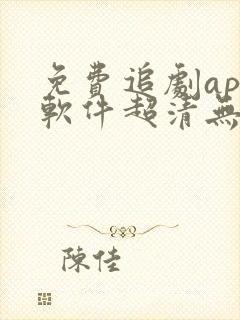 免費追劇ap
軟件超清無
陳佳